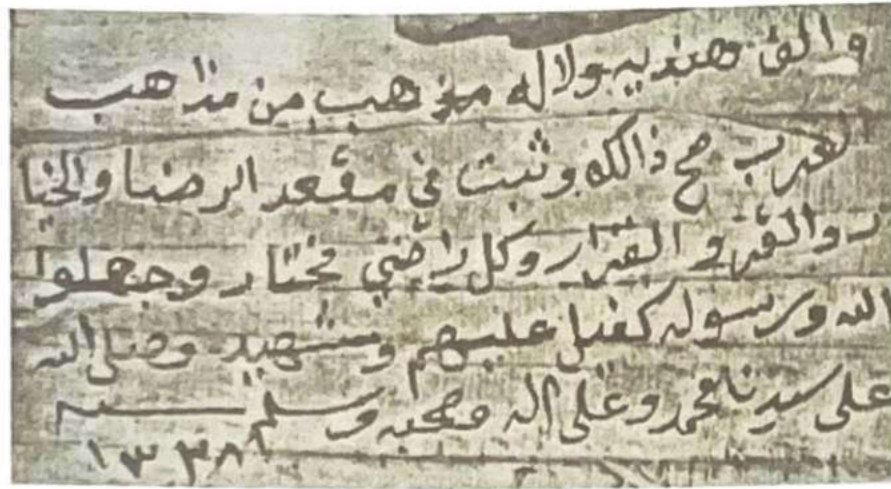 والف هنديه ولاله مذهب من مذاهب
لعرب صح ذالكه وثبت في مقعد الرضا والخيا
ر والقر والقرار وكل راضي مختار وجعلوا
الله ورسوله كفيل عليهم وشهيد وصلى الله
على سيدنا محمد وعلى اله وصحبه وسلم سنه
١٣٣٨